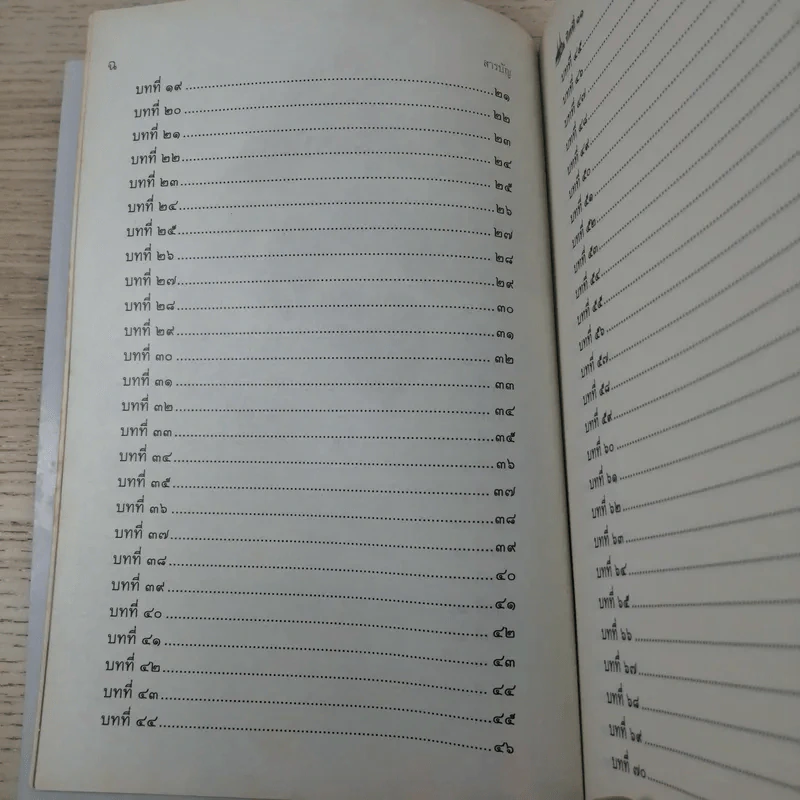 ฉ สารบัญ
บทที่ ๑๙ ........ ๒๑
บทที่ ๒๐ ........ ๒๒
บทที่ ๒๑ ........ ๒๓
บทที่ ๒๒ ........ ๒๔
บทที่ ๒๓ ........ ๒๕
บทที่ ๒๔ ........ ๒๖
บทที่ ๒๕ ........ ๒๗
บทที่ ๒๖ ........ ๒๘
บทที่ ๒๗ ........ ๒๙
บทที่ ๒๘ ........ ๓๐
บทที่ ๒๙ ........ ๓๑
บทที่ ๓๐ ........ ๓๒
บทที่ ๓๑ ........ ๓๓
บทที่ ๓๒ ........ ๓๔
บทที่ ๓๓ ........ ๓๕
บทที่ ๓๔ ........ ๓๖
บทที่ ๓๕ ........ ๓๗
บทที่ ๓๖ ........ ๓๘
บทที่ ๓๗ ........ ๓๙
บทที่ ๓๘ ........ ๔๐
บทที่ ๓๙ ........ ๔๑
บทที่ ๔๐ ........ ๔๒
บทที่ ๔๑ ........ ๔๓
บทที่ ๔๒ ........ ๔๔
บทที่ ๔๓ ........ ๔๕
บทที่ ๔๔ ........ ๔๖
บทที่ ๔๕ ........
บทที่ ๔๖ ........
บทที่ ๔๗ ........
บทที่ ๔๘ ........
บทที่ ๔๙ ........
บทที่ ๕๐ ........
บทที่ ๕๑ ........
บทที่ ๕๒ ........
บทที่ ๕๓ ........
บทที่ ๕๔ ........
บทที่ ๕๕ ........
บทที่ ๕๖ ........
บทที่ ๕๗ ........
บทที่ ๕๘ ........
บทที่ ๕๙ ........
บทที่ ๖๐ ........
บทที่ ๖๑ ........
บทที่ ๖๒ ........
บทที่ ๖๓ ........
บทที่ ๖๔ ........
บทที่ ๖๕ ........
บทที่ ๖๖ ........
บทที่ ๖๗ ........
บทที่ ๖๘ ........
บทที่ ๖๙ ........
บทที่ ๗๐ ........